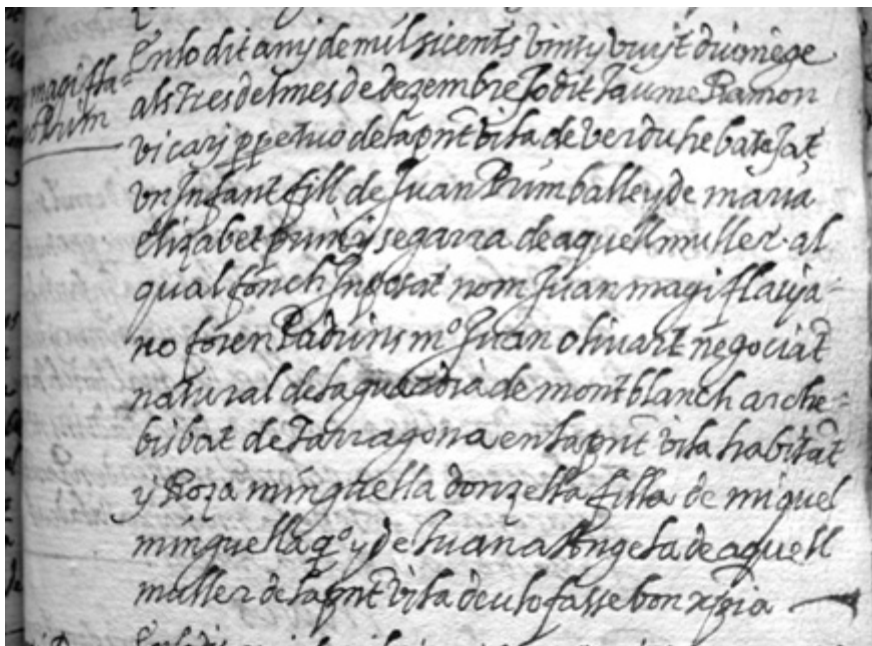 magi fla=
no Prim
En lo dit any de mil sicents vint y vuyt diumege
als tres del mes de dezembre Jo dit Jaume Ramon
vicari ppetuo de la pnt vila de verdu he batejat
vn Infant fill de Juan Prim balle y de maria
Elizabet prim y segarra de aquell muller. al
qual fonch Inposat nom Juan magi flauja=
no foren Padrins mº Juan oliuart negociat
natural de la guardia de montblanch arche=
bisbat de Tarragona en la pnt vila habitat
y Roza minguella donzella filla de miquel
minguella qº y de Juana Angela de aquell
muller de la pnt vila deu lo fasse bon xpia
En lo dit